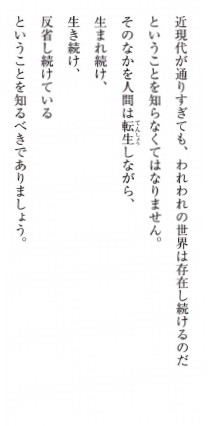 近現代が通りすぎても、われわれの世界は存在し続けるのだ
ということを知らなくてはなりません。
そのなかを人間は転生しながら、
てんしょう
生まれ続け、
生き続け、
反省し続けている
ということを知るべきでありましょう。